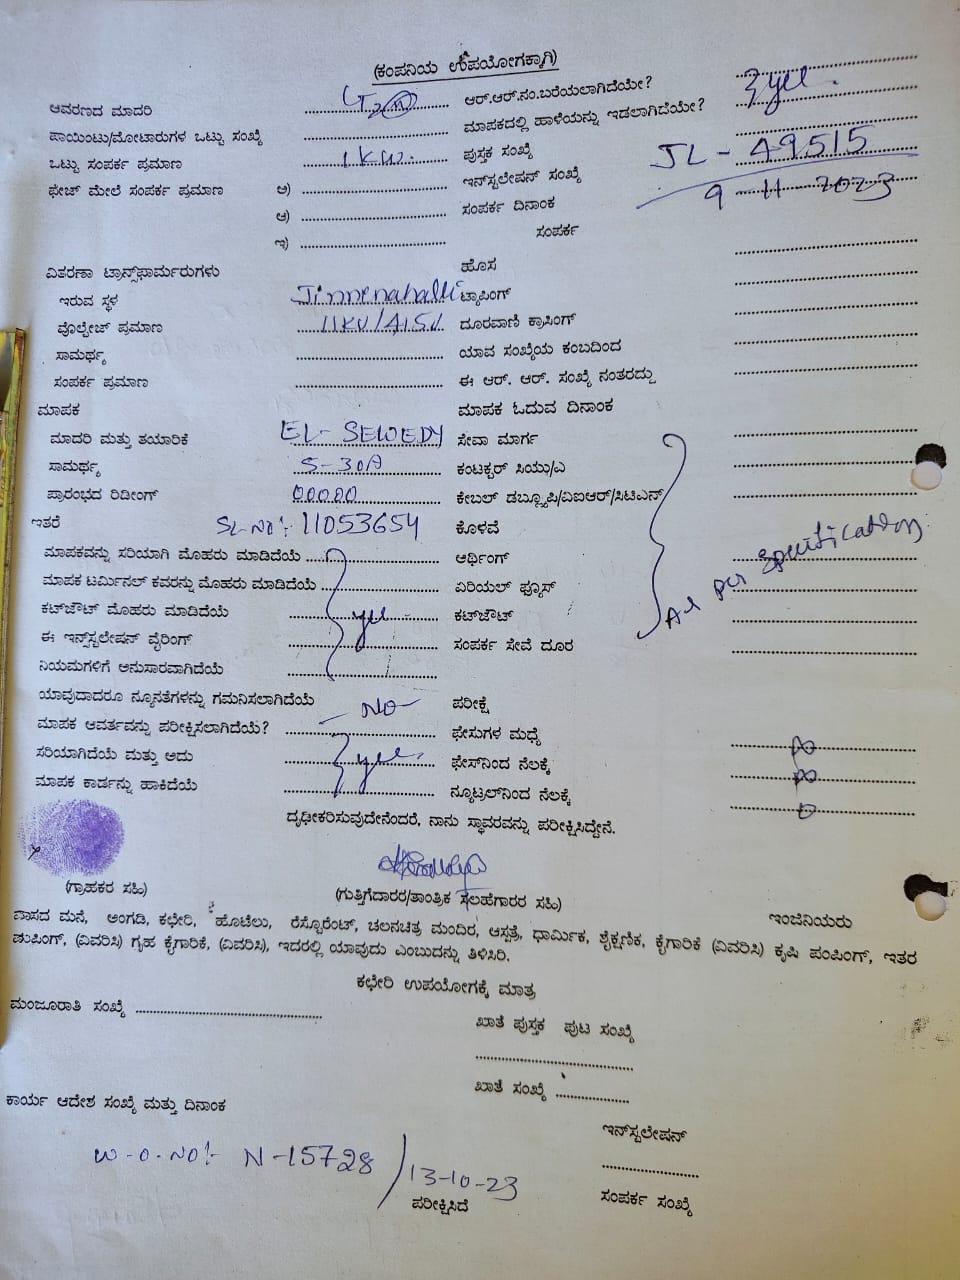 (ಕಂಪನಿಯ ಉಪಯೋಗಕ್ಕಾಗಿ)
ಆವರಣದ ಮಾದರಿ
ಪಾಯಿಂಟು/ಮೋಟಾರುಗಳ ಒಟ್ಟು ಸಂಖ್ಯೆ
ಒಟ್ಟು ಸಂಪರ್ಕ ಪ್ರಮಾಣ 1 kw.
ಫೇಜ್ ಮೇಲೆ ಸಂಪರ್ಕ ಪ್ರಮಾಣ ಅ)
ಆ)
ಇ)
ವಿತರಣಾ ಟ್ರಾನ್ಸ್‌ಫಾರ್ಮರುಗಳು
ಇರುವ ಸ್ಥಳ Jinnenahalli
ವೋಲ್ಟೇಜ್ ಪ್ರಮಾಣ 11KV/415V
ಸಾಮರ್ಥ್ಯ
ಸಂಪರ್ಕ ಪ್ರಮಾಣ
ಮಾಪಕ
ಮಾದರಿ ಮತ್ತು ತಯಾರಿಕೆ EL- SEWEDY
ಸಾಮರ್ಥ್ಯ 5-30A
ಪ್ರಾರಂಭದ ರಿಡೀಂಗ್ 00000
ಇತರೆ SL No:- 11053654
ಮಾಪಕವನ್ನು ಸರಿಯಾಗಿ ಮೊಹರು ಮಾಡಿದೆಯೆ
ಮಾಪಕ ಟರ್ಮಿನಲ್ ಕವರನ್ನು ಮೊಹರು ಮಾಡಿದೆಯೆ
ಕಟ್‌ಔಟ್ ಮೊಹರು ಮಾಡಿದೆಯೆ yes
ಈ ಇನ್ಸ್‌ಸ್ಟಲೇಷನ್ ವೈರಿಂಗ್
ನಿಯಮಗಳಿಗೆ ಅನುಸಾರವಾಗಿದೆಯೆ
ಯಾವುದಾದರೂ ನ್ಯೂನತೆಗಳನ್ನು ಗಮನಿಸಲಾಗಿದೆಯೆ - No -
ಮಾಪಕ ಆವರ್ತವನ್ನು ಪರೀಕ್ಷಿಸಲಾಗಿದೆಯೆ?
ಸರಿಯಾಗಿದೆಯೆ ಮತ್ತು ಅದು yes
ಮಾಪಕ ಕಾರ್ಡನ್ನು ಹಾಕಿದೆಯೆ
ಆರ್.ಆರ್.ನಂ.ಬರೆಯಲಾಗಿದೆಯೇ?
ಮಾಪಕದಲ್ಲಿ ಹಾಳೆಯನ್ನು ಇಡಲಾಗಿದೆಯೇ? yes.
ಪುಸ್ತಕ ಸಂಖ್ಯೆ
ಇನ್‌ಸ್ಟಲೇಷನ್ ಸಂಖ್ಯೆ JL - 49515
ಸಂಪರ್ಕ ದಿನಾಂಕ 9-11-2023
ಸಂಪರ್ಕ
ಹೊಸ
ಟ್ಯಾಪಿಂಗ್
ದೂರವಾಣಿ ಕ್ರಾಸಿಂಗ್
ಯಾವ ಸಂಖ್ಯೆಯ ಕಂಬದಿಂದ
ಈ ಆರ್. ಆರ್. ಸಂಖ್ಯೆ ನಂತರದ್ದು
ಮಾಪಕ ಓದುವ ದಿನಾಂಕ
ಸೇವಾ ಮಾರ್ಗ
ಕಂಟಕ್ಟರ್ ಸಿಯು/ಎ
ಕೇಬಲ್ ಡಬ್ಲ್ಯೂಪಿ/ವಿಐಆರ್/ಸಿಟಿಎನ್
ಕೊಳವೆ
ಆರ್ಥಿಂಗ್ As per specification
ಏರಿಯಲ್ ಫ್ಯೂಸ್
ಕಟ್‌ಔಟ್
ಸಂಪರ್ಕ ಸೇವೆ ದೂರ
ಪರೀಕ್ಷೆ
ಫೇಸುಗಳ ಮಧ್ಯೆ ∞
ಫೇಸ್‌ನಿಂದ ನೆಲಕ್ಕೆ ∞
ನ್ಯೂಟ್ರಲ್‌ನಿಂದ ನೆಲಕ್ಕೆ 0
ದೃಢೀಕರಿಸುವುದೇನೆಂದರೆ, ನಾನು ಸ್ಥಾವರವನ್ನು ಪರೀಕ್ಷಿಸಿದ್ದೇನೆ.
(ಗ್ರಾಹಕರ ಸಹಿ)
(ಗುತ್ತಿಗೆದಾರರ/ತಾಂತ್ರಿಕ ಸಲಹೆಗಾರರ ಸಹಿ)
ಇಂಜಿನಿಯರು
ವಾಸದ ಮನೆ, ಅಂಗಡಿ, ಕಛೇರಿ, ಹೊಟೆಲು, ರೆಸ್ಟೊರೆಂಟ್, ಚಲನಚಿತ್ರ ಮಂದಿರ, ಆಸ್ಪತ್ರೆ, ಧಾರ್ಮಿಕ, ಶೈಕ್ಷಣಿಕ, ಕೈಗಾರಿಕೆ (ವಿವರಿಸಿ) ಕೃಷಿ ಪಂಪಿಂಗ್, ಇತರ
ಪಂಪಿಂಗ್, (ವಿವರಿಸಿ) ಗೃಹ ಕೈಗಾರಿಕೆ, (ವಿವರಿಸಿ), ಇದರಲ್ಲಿ ಯಾವುದು ಎಂಬುದನ್ನು ತಿಳಿಸಿರಿ.
ಕಛೇರಿ ಉಪಯೋಗಕ್ಕೆ ಮಾತ್ರ
ಮಂಜೂರಾತಿ ಸಂಖ್ಯೆ
ಖಾತೆ ಪುಸ್ತಕ ಪುಟ ಸಂಖ್ಯೆ
ಖಾತೆ ಸಂಖ್ಯೆ
ಕಾರ್ಯ ಆದೇಶ ಸಂಖ್ಯೆ ಮತ್ತು ದಿನಾಂಕ
ಇನ್‌ಸ್ಟಲೇಷನ್
W-O-NO:- N-15728 / 13-10-23
ಪರೀಕ್ಷಿಸಿದೆ
ಸಂಪರ್ಕ ಸಂಖ್ಯೆ